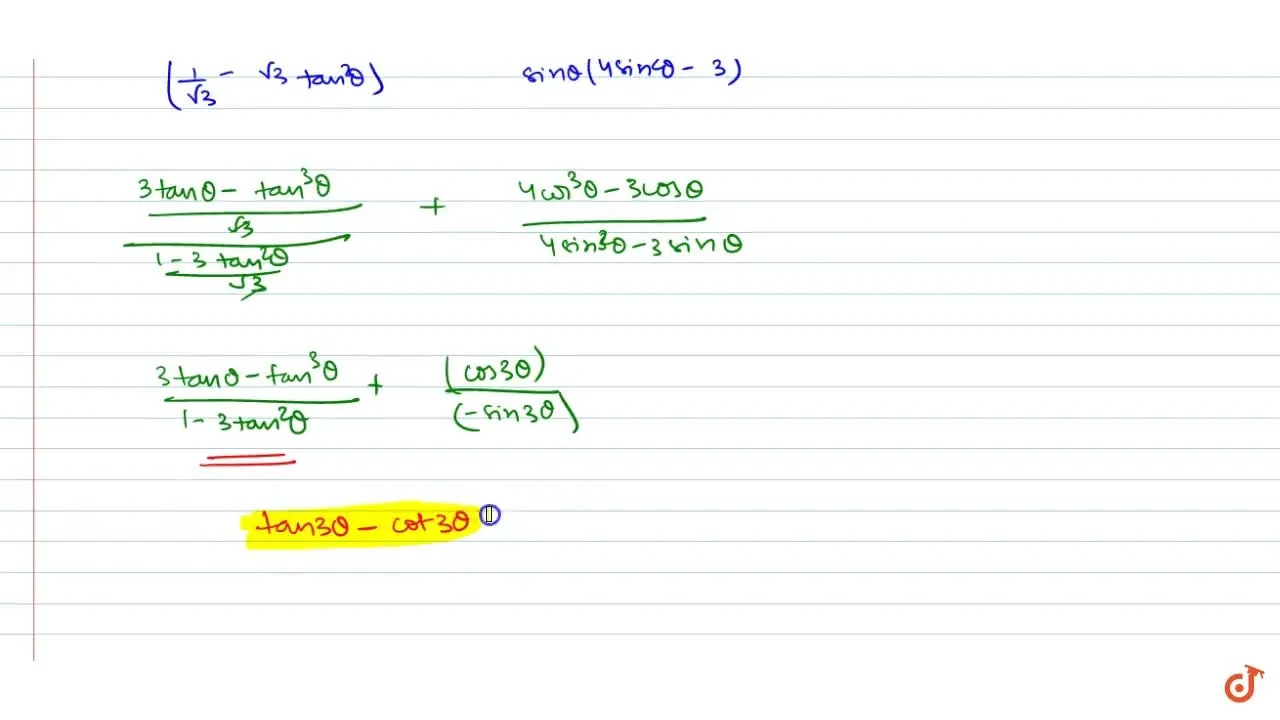 (1/√3 - √3 tan²θ) sinθ(4sin²θ - 3)
(3tanθ - tan³θ)/√3 / (1 - 3tan²θ)/√3 + (4cos³θ - 3cosθ)/(4sin³θ - 3sinθ)
(3tanθ - tan³θ)/(1 - 3tan²θ) + (cos3θ)/(-sin3θ)
tan3θ - cot3θ